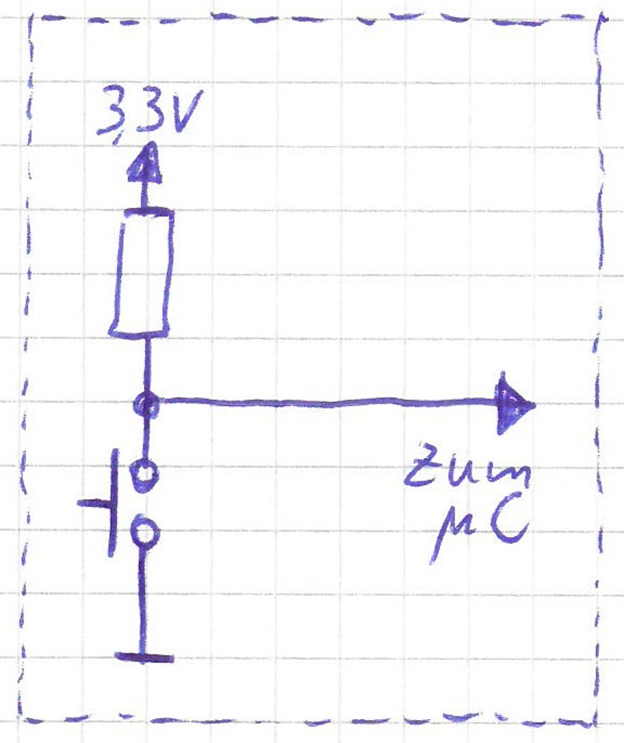 3,3V
Zum
µC